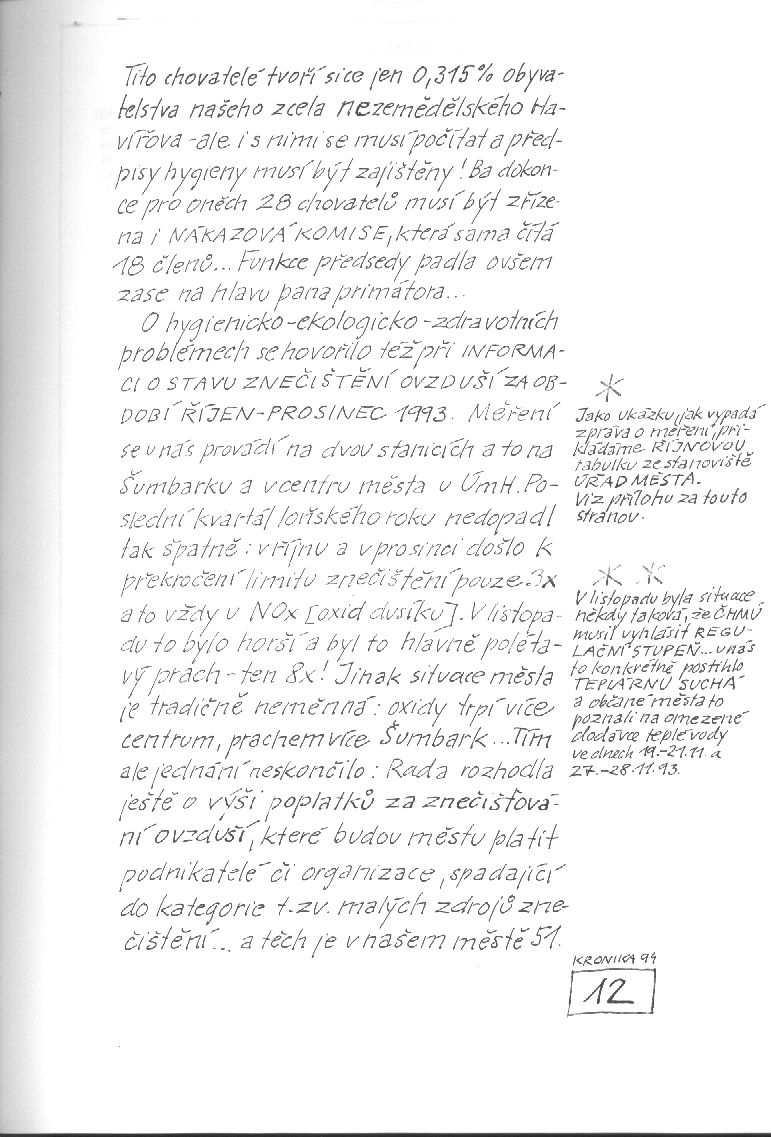 Tito chovatelé tvoří sice jen 0,315% obyva-
telstva našeho zcela nezemědělského Ha-
vířova - ale i s nimi se musí počítat a před-
pisy hygieny musí být zajištěny! Ba dokon-
ce pro oněch 28 chovatelů musí být zříze-
na i NÁKAZOVÁ KOMISE, která sama čítá
18 členů... Funkce předsedy padla ovšem
zase na hlavu pana primátora...
O hygienicko-ekologicko-zdravotních
problémech se hovořilo též při INFORMA-
CI O STAVU ZNEČIŠTĚNÍ OVZDUŠÍ ZA OB-
DOBÍ ŘÍJEN-PROSINEC 1993. Měření
se u nás provádí na dvou stanicích a to na
Šumbarku a v centru města u ÚmH. Po-
slední kvartál loňského roku nedopadl
tak špatně: v říjnu a v prosinci došlo k
překročení limitu znečištění pouze 3x
a to vždy u NOx [oxid dusíku]. V listopa-
du to bylo horší a byl to hlavně poléta-
vý prach - ten 8x! Jinak situace města
je tradičně neměnná: oxidy trpí více
centrum, prachem více Šumbark... Tím
ale jednání neskončilo: Rada rozhodla
ještě o výši poplatků za znečišťová-
ní ovzduší, které budou městu platit
podnikatelé či organizace, spadající
do kategorie t.zv. malých zdrojů zne-
čištění... a těch je v našem městě 51.
*
Jako ukázku, jak vypadá
zpráva o měření, při-
kládáme ŘÍJNOVOU
tabulku ze stanoviště
ÚŘAD MĚSTA.
Viz přílohu za touto
stranou.
* *
V listopadu byla situace
někdy taková, že ČHMÚ
musil vyhlásit REGU-
LAČNÍ STUPEŇ... u nás
to konkrétně postihlo
TEPLÁRNU SUCHÁ
a občané města to
poznali na omezené
dodávce teplé vody
ve dnech 19.-21.11. a
27.-28.11.93.
KRONIKA 94
12